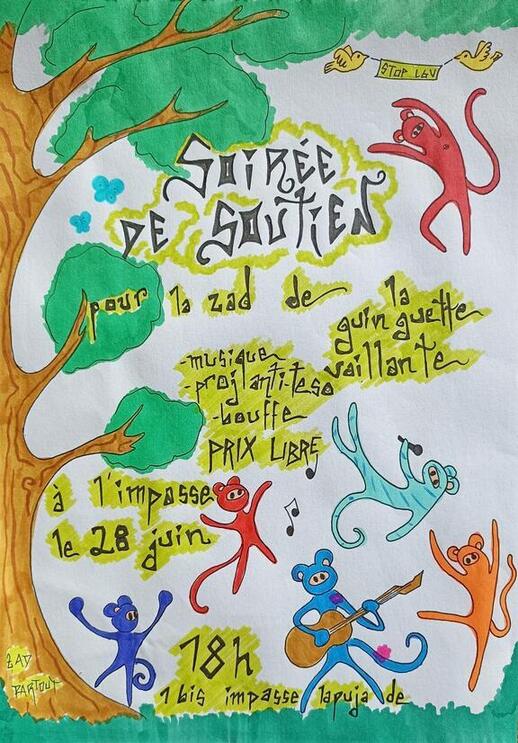 STOP LGV
SOIRÉE
DE SOUTIEN
pour la zad de la
guinguette
vaillante
-musique
-proj anti-teso
-bouffe
PRIX LIBRE
à l'impasse
le 28 juin
18h
1 bis impasse lapujade
ZAD
PARTOUT